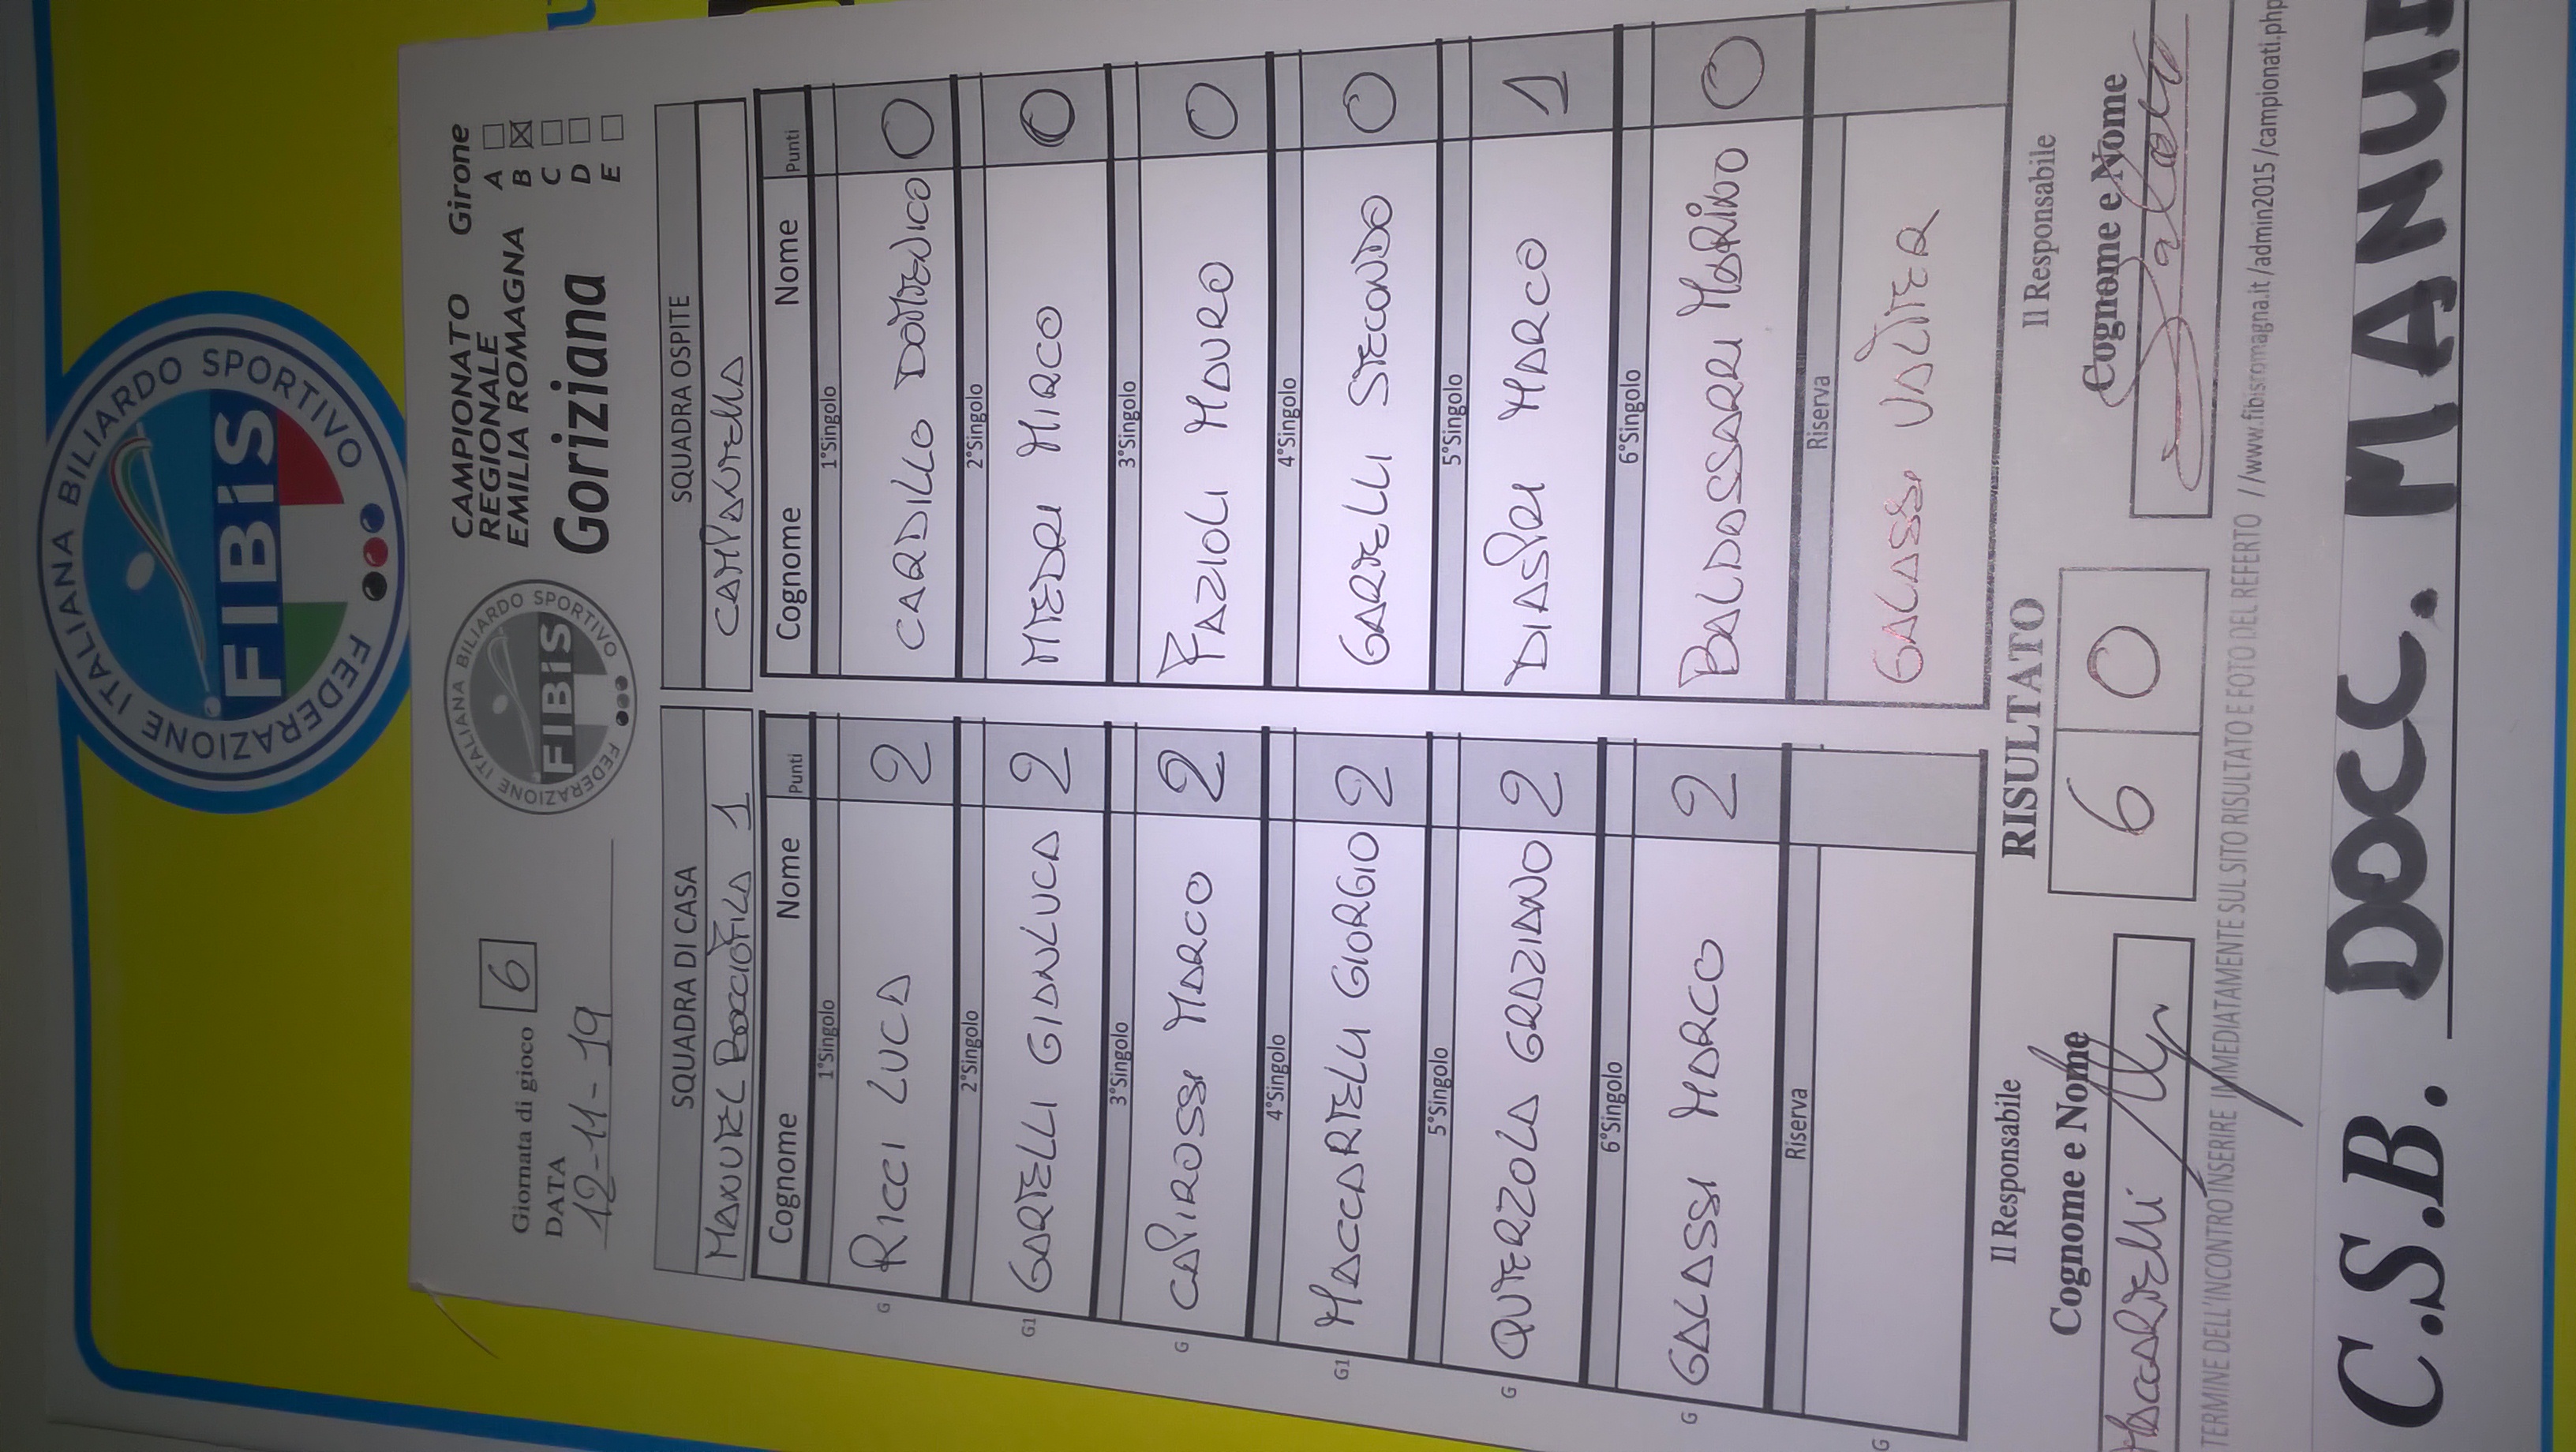 FEDERAZIONE ITALIANA BILIARDO SPORTIVO
FIBiS
Giornata di gioco 6
DATA
12-11-19
FEDERAZIONE ITALIANA BILIARDO SPORTIVO
FIBiS
CAMPIONATO
REGIONALE
EMILIA ROMAGNA
Goriziana
Girone
A
B ☒
C
D
E
SQUADRA DI CASA
MANUEL BOCCIOFILA 1
Cognome Nome Punti
1°Singolo
G RICCI LUCA 2
2°Singolo
G1 GARELLI GIANLUCA 2
3°Singolo
G CAPIROSSI MARCO 2
4°Singolo
G1 MACCARELLI GIORGIO 2
5°Singolo
G QUERZOLA GRAZIANO 2
6°Singolo
G GALASSI MARCO 2
Riserva
G
SQUADRA OSPITE
CAMPANELLA
Cognome Nome Punti
1°Singolo
CARDILLO DOMENICO 0
2°Singolo
MEDRI MIRCO 0
3°Singolo
FAZIOLI MAURO 0
4°Singolo
GARELLI SECONDO 0
5°Singolo
DIASPRI MARCO 1
6°Singolo
BALDASSARRI MARINO 0
Riserva
GALASSI VALTER
Il Responsabile
Cognome e Nome
Maccarelli
RISULTATO
6 0
Il Responsabile
Cognome e Nome
TERMINE DELL'INCONTRO INSERIRE IMMEDIATAMENTE SUL SITO RISULTATO E FOTO DEL REFERTO //www.fibisromagna.it/admin2015/campionati.php
C.S.B. DOCC. MANUE